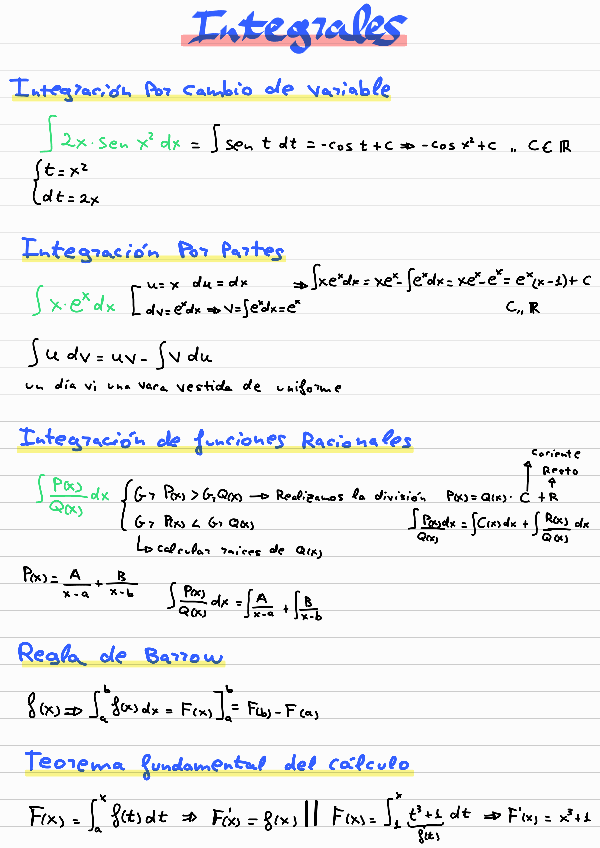 Integrales
Integración por cambio de variable
∫ 2x · sen x² dx = ∫ sen t dt = -cos t + c ⇒ -cos x² + c ,, C ∈ ℝ
{ t = x²
{ dt = 2x
Integración por partes
∫ x · eˣ dx [ u = x du = dx ⇒ ∫ xeˣdx = xeˣ - ∫ eˣdx = xeˣ - eˣ = eˣ(x-1) + C
dv = eˣdx ⇒ v = ∫ eˣdx = eˣ C,, ℝ
∫ u dv = uv - ∫ v du
un día vi una vaca vestida de uniforme
Integración de funciones Racionales
Cociente
Resto
∫ P(x)/Q(x) dx { Gr P(x) > Gr Q(x) → Realizamos la división P(x) = Q(x) · C + R
{ Gr P(x) < Gr Q(x) ∫ P(x)dx/Q(x) = ∫ C(x) dx + ∫ R(x)/Q(x) dx
↳ calcular raíces de Q(x)
P(x) = A/x-a + B/x-b ∫ P(x)/Q(x) dx = ∫ A/x-a + ∫ B/x-b
Regla de Barrow
f(x) ⇒ ∫ₐᵇ f(x) dx = F(x) ]ₐᵇ = F(b) - F(a)
Teorema fundamental del cálculo
F(x) = ∫ₐˣ f(t) dt ⇒ F'(x) = f(x) || F(x) = ∫₁ˣ t³+1 dt ⇒ F'(x) = x³+1
f(t)